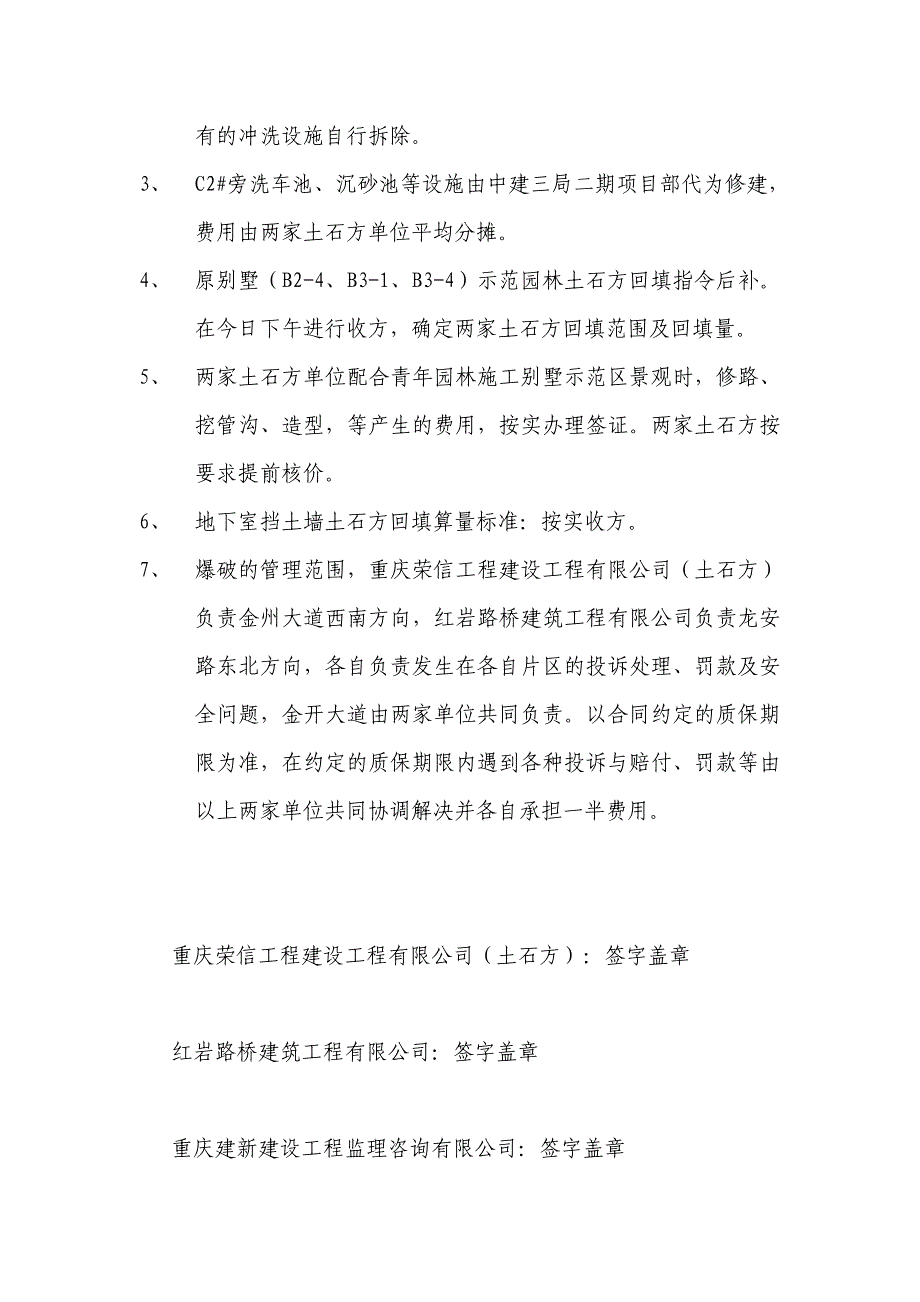 有的冲洗设施自行拆除。
3、 C2#旁洗车池、沉砂池等设施由中建三局二期项目部代为修建，
费用由两家土石方单位平均分摊。
4、 原别墅（B2-4、B3-1、B3-4）示范园林土石方回填指令后补。
在今日下午进行收方，确定两家土石方回填范围及回填量。
5、 两家土石方单位配合青年园林施工别墅示范区景观时，修路、
挖管沟、造型，等产生的费用，按实办理签证。两家土石方按
要求提前核价。
6、 地下室挡土墙土石方回填算量标准：按实收方。
7、 爆破的管理范围，重庆荣信工程建设工程有限公司（土石方）
负责金州大道西南方向，红岩路桥建筑工程有限公司负责龙安
路东北方向，各自负责发生在各自片区的投诉处理、罚款及安
全问题，金开大道由两家单位共同负责。以合同约定的质保期
限为准，在约定的质保期限内遇到各种投诉与赔付、罚款等由
以上两家单位共同协调解决并各自承担一半费用。
重庆荣信工程建设工程有限公司（土石方）：签字盖章
红岩路桥建筑工程有限公司：签字盖章
重庆建新建设工程监理咨询有限公司：签字盖章